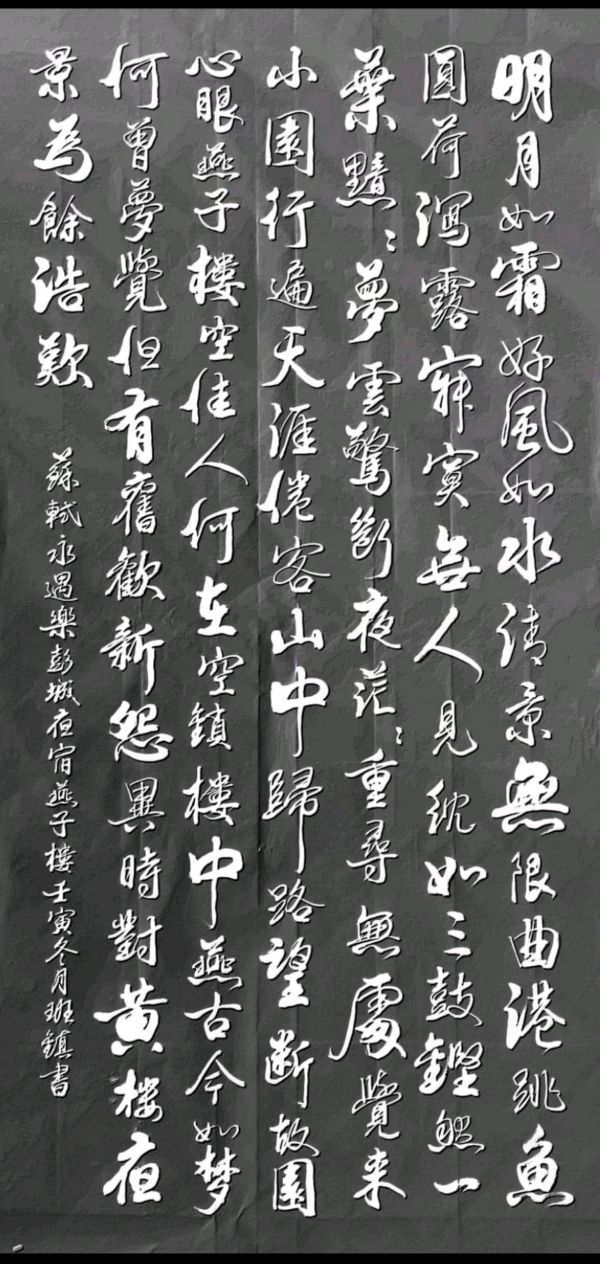 明月如霜好風如水清景無限曲港跳魚
圓荷瀉露寂寞無人見紞如三鼓鏗然一
葉黯〻夢雲驚斷夜茫〻重尋無處覺来
小園行遍天涯倦客山中歸路望断故園
心眼燕子樓空佳人何在空鎖樓中燕古今如梦
何曾夢覺但有舊歡新怨異時對黄楼夜
景為餘浩歎
蘇軾永遇樂彭城夜宿燕子樓壬寅冬月班鎮書